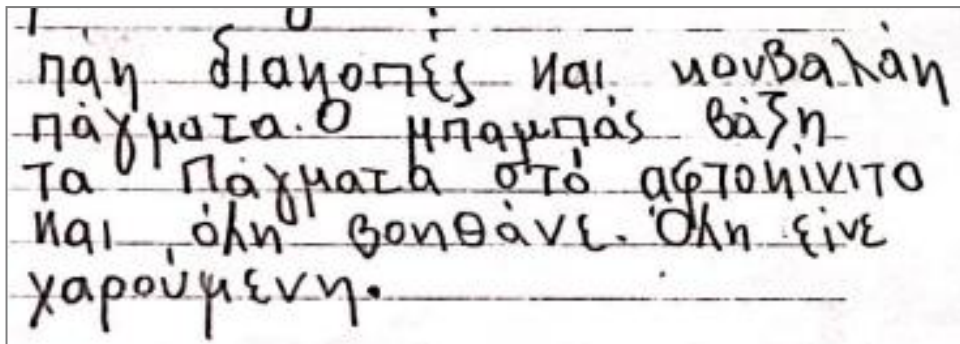 πάη διακοπές και κουβαλάη
πάγματα. Ο μπαμπάς βάζη
τα Πάγματα στό αφτοκίνιτο
και όλη βοηθάνε. Όλη είνε
χαρούμενη.